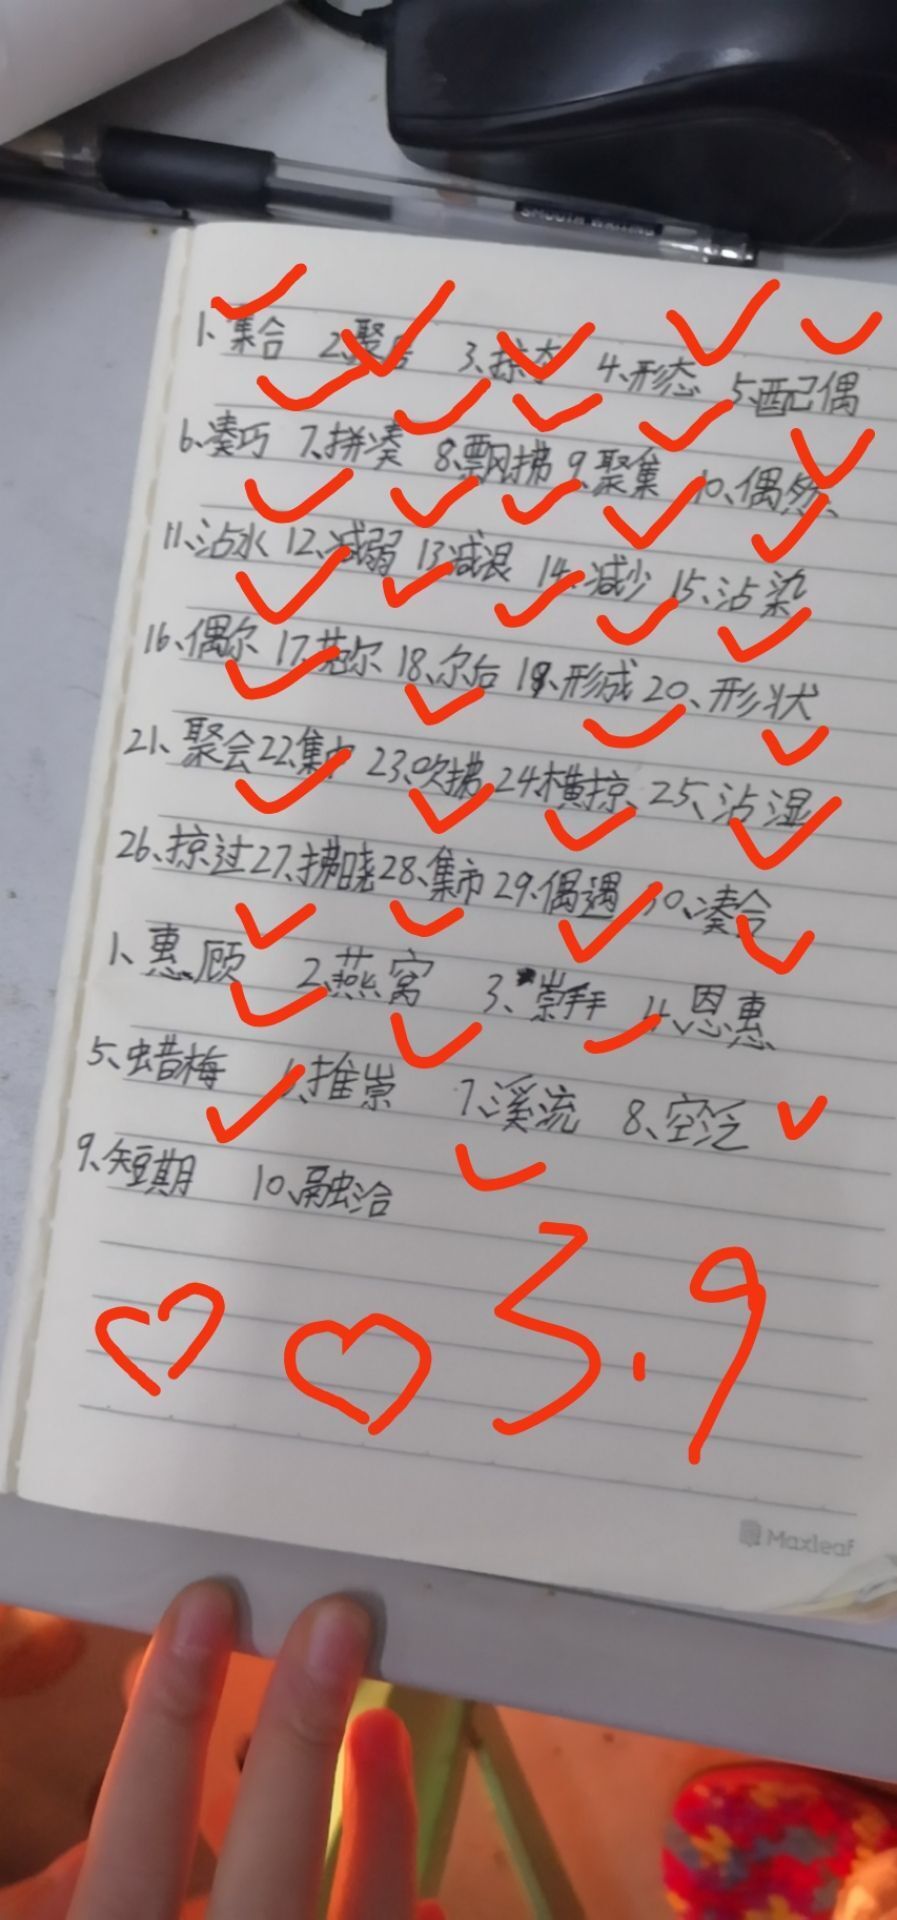 SMOOTH WRITING
1、集合 2、聚 3、掠 4、形态 5、配偶
6、凑巧 7、拼凑 8、飘拂 9、聚集 10、偶然、
11、沾水 12、减弱 13、减退 14、减少 15、沾染
16、偶尔 17、莞尔 18、尔后 19、形成 20、形状
21、聚会 22、集中 23、吹拂 24、横掠、 25、沾湿
26、掠过 27、拂晓 28、集市 29、偶遇 30、凑合
1、惠顾 2、燕窝 3、崇拜 4、恩惠
5、蜡梅 6、推崇 7、溪流 8、空泛
9、短期 10、融洽
3.9
Maxleaf